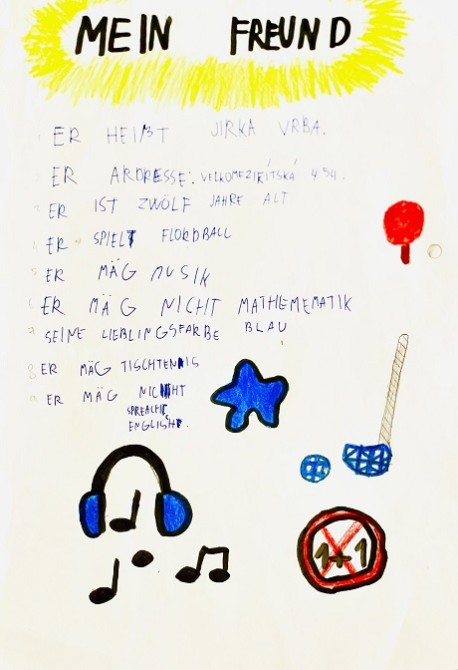 MEIN FREUND
1 ER HEIßT JIRKA VRBA.
2 ER ARDRESSE: VELKOMEZIŘÍTSKÁ 434.
3 ER IST ZWÖLF JAHRE ALT
4 ER SPIELT FLORDBALL
5 ER MÄG MUSIK
6 ER MÄG NICHT MATHEMEMATIK
7 SEINE LIEBLINGSFARBE BLAU
8 ER MÄG TISCHTENNIS
9 ER MÄG NICHT
SPRECHT
ENGLISHT.
1+1